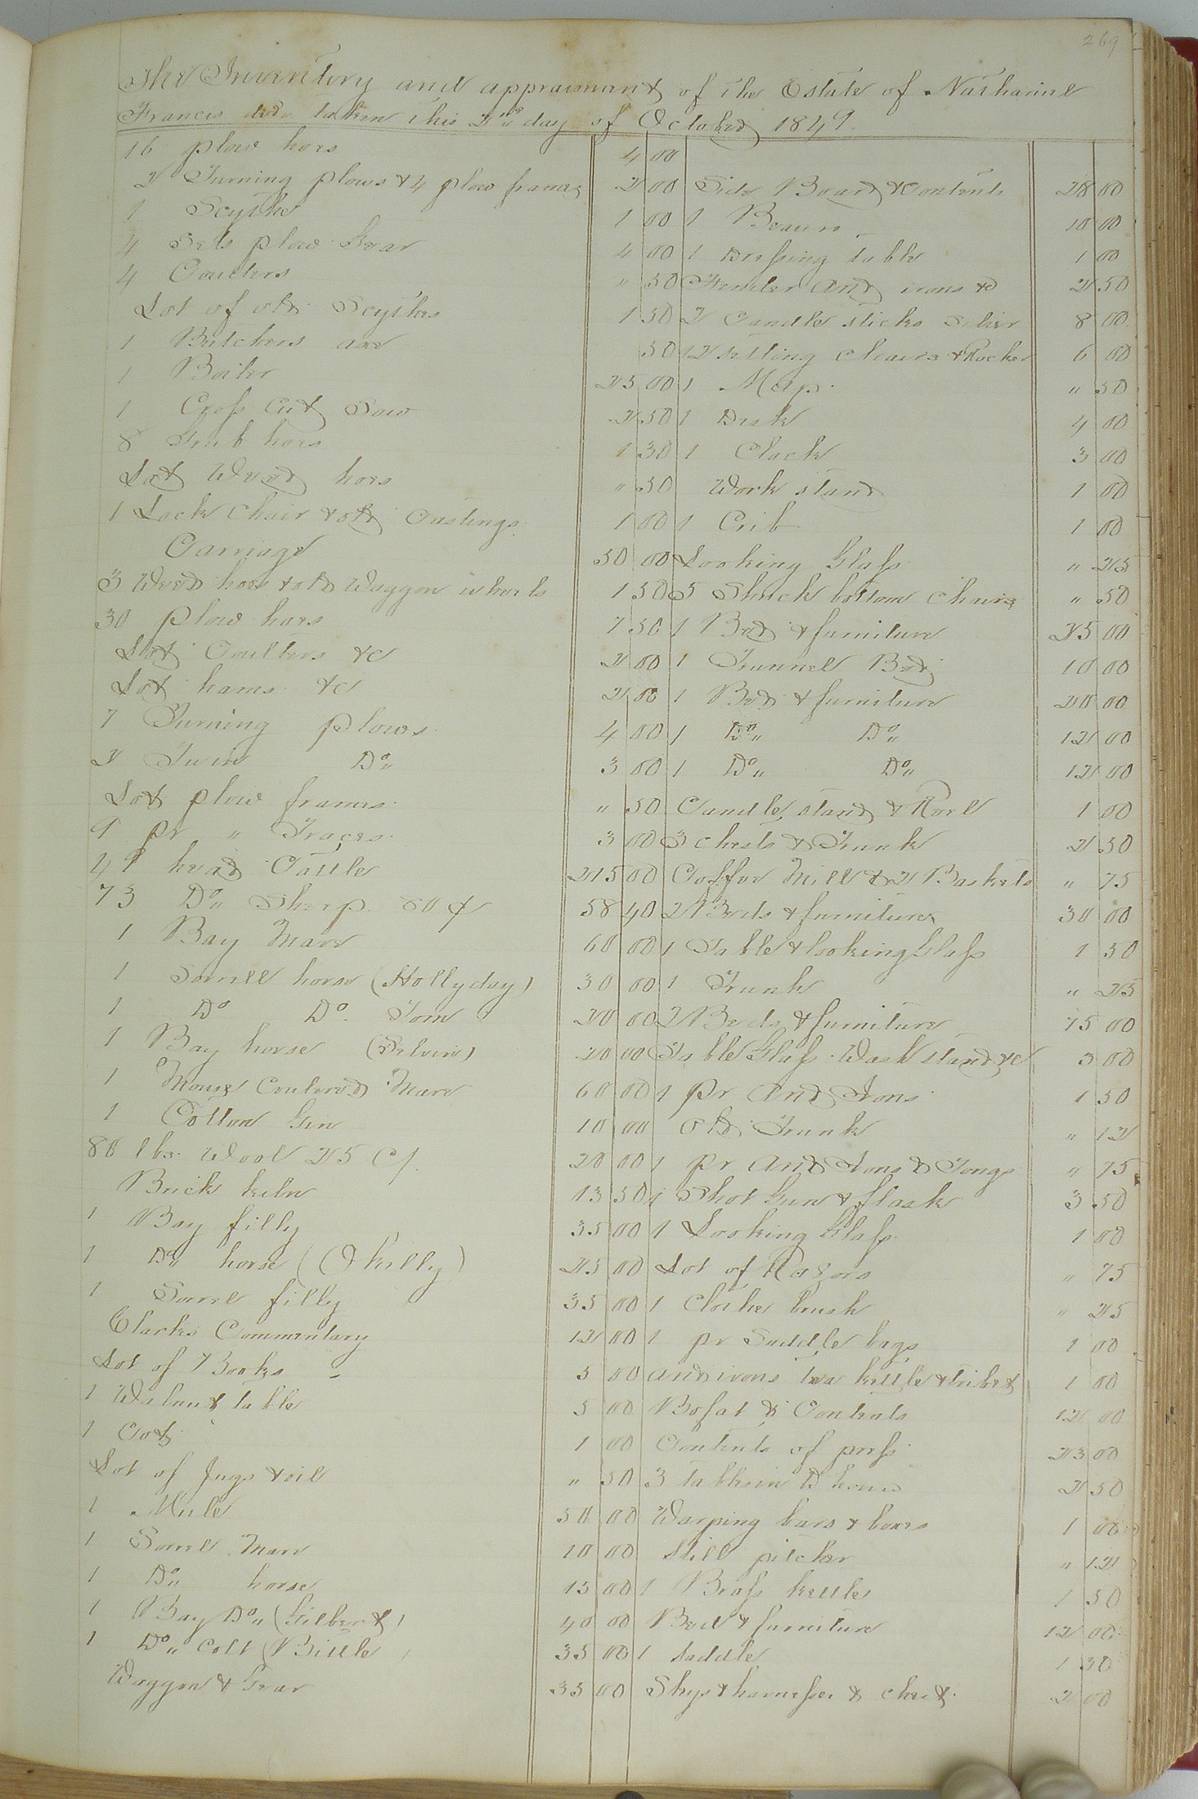 269
The Inventory and appraisment of the Estate of Nathaniel
Francis decd taken this 2nd day of October 1849
16 plow hoes 4 00
2 Turning plows & 4 plow frames 2 00
1 Scythe 1 00
4 Sets plow Gear 4 00
4 Coulters " 50
Lot of old Scythes 1 50
1 Butchers axe 50
1 Boiler 25 00
1 Cross Cut Saw 2 50
8 Grub hoes 1 30
Lot Weed hoes " 50
1 Lock Chair & old Castings 1 00
Carriage 50 00
3 Weed hoes & old Waggon wheels 1 50
30 plow hoes 7 50
Lot Coulters &c 2 00
Lot hams &c 2 00
7 Turning plows 4 00
2 Twin Do 3 00
Lot plow frames " 50
9 pr " Traces 3 00
49 head Cattle 215 00
73 Do Sheep 80 ¢ 58 40
1 Bay Mare 60 00
1 Sorrell horse (Hollyday) 30 00
1 Do Do Tom 20 00
1 Bay horse (Selvin) 20 00
1 Mouse Coulered Mare 60 00
1 Cotton Gin 10 00
80 lbs. Wool 25 C/ 20 00
Brick kiln 13 50
1 Bay filly 35 00
1 Do horse ( ) 25 00
1 Sorrel filly 35 00
Clarks Commentary 12 00
Lot of Books 5 00
1 Walnut table 5 00
1 Cot 1 00
Lot of Jugs & oil " 50
1 Mule 50 00
1 Sorrel Mare 10 00
1 Do horse 15 00
1 Bay Do (Gilbert) 40 00
1 Do Colt ( ) 35 00
Waggon & Gear 35 00
Side Board & Contents 28 00
1 Beaura 10 00
1 Dressing table 1 00
Fender And irons &c 2 50
2 Candle sticks Silver 8 00
12 setting chairs & Rocker 6 00
1 Map " 50
1 Desk 4 00
1 Clock 3 00
Work stand 1 00
1 Crib 1 00
Looking Glass " 25
5 Shuck bottom chairs " 50
1 Bed & furniture 25 00
1 Trunnel Bed 10 00
1 Bed & furniture 20 00
1 Do Do 12 00
1 Do Do 12 00
Candle stand & Reel 1 00
3 chests & Trunk 2 50
Coffee Mill & 2 Baskets " 75
2 Beds & furniture 30 00
1 Table & looking Glass 1 50
1 Trunk " 25
2 Beds & furniture 75 00
Table Glass Wash stand &c 5 00
1 pr And Irons 1 50
Old Trunk " 12
1 pr And Irons & Tongs " 75
1 Shot Gun & flask 3 50
1 Looking Glass 1 00
Lot of Razors " 75
1 Clothe brush " 25
1 pr Saddle bags 1 00
andirons tea kettle & trivet 1 00
Bofat & Contents 12 00
Contents of press 23 00
3 tables in D house 2 50
Warping bars & boxes 1 00
Still pitcher " 12
1 Brass kettle 1 50
Bed & furniture 12 00
1 saddle 1 50
& harnesses & 2 00